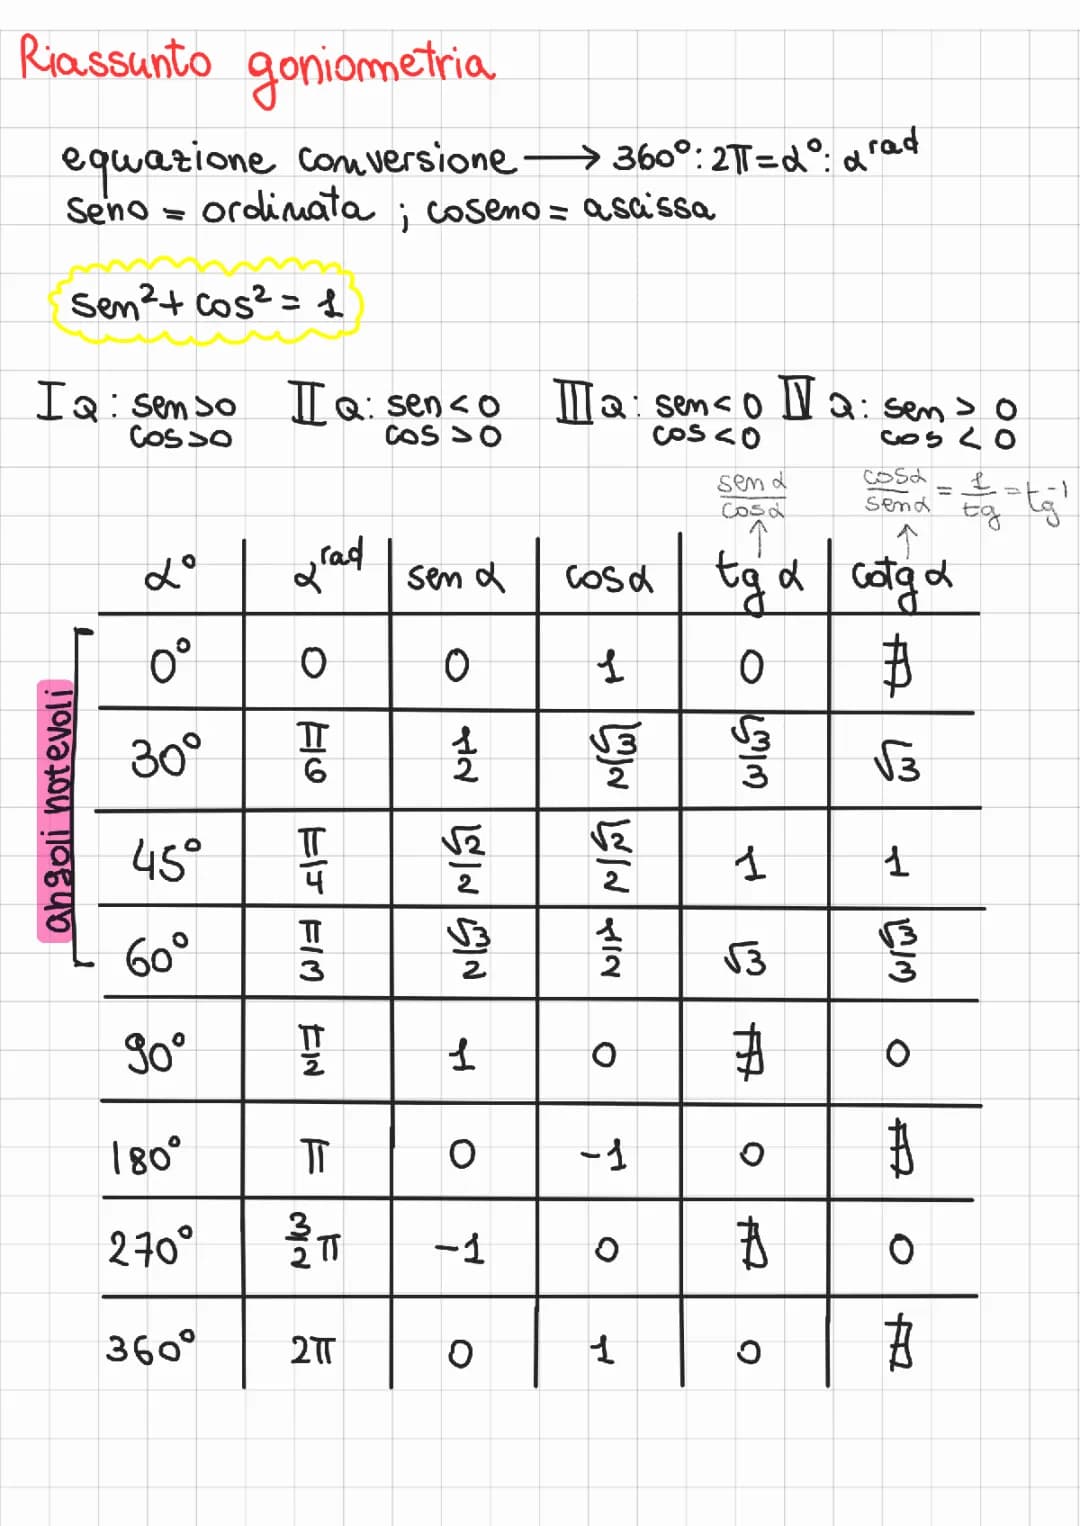 Riassunto goniometria
equazione conversione → 360°: 2π=α°: α^rad
seno = ordinata ; coseno= ascissa
sen²+ cos² = 1
I Q: sen>0 II Q: sen<0 III Q: sen<0 IV Q: sen > 0
cos>0 cos >0 cos <0 cos < 0
senα/cosα cosα/senα = 1/tg = tg⁻¹
↑ ↑
α° α^rad sen α cosα tg α cotg α
angoli notevoli
0° 0 0 1 0 ∄
30° π/6 1/2 √3/2 √3/3 √3
45° π/4 √2/2 √2/2 1 1
60° π/3 √3/2 1/2 √3 √3/3
90° π/2 1 0 ∄ 0
180° π 0 -1 0 ∄
270° 3/2 π -1 0 ∄ 0
360° 2π 0 1 0 ∄